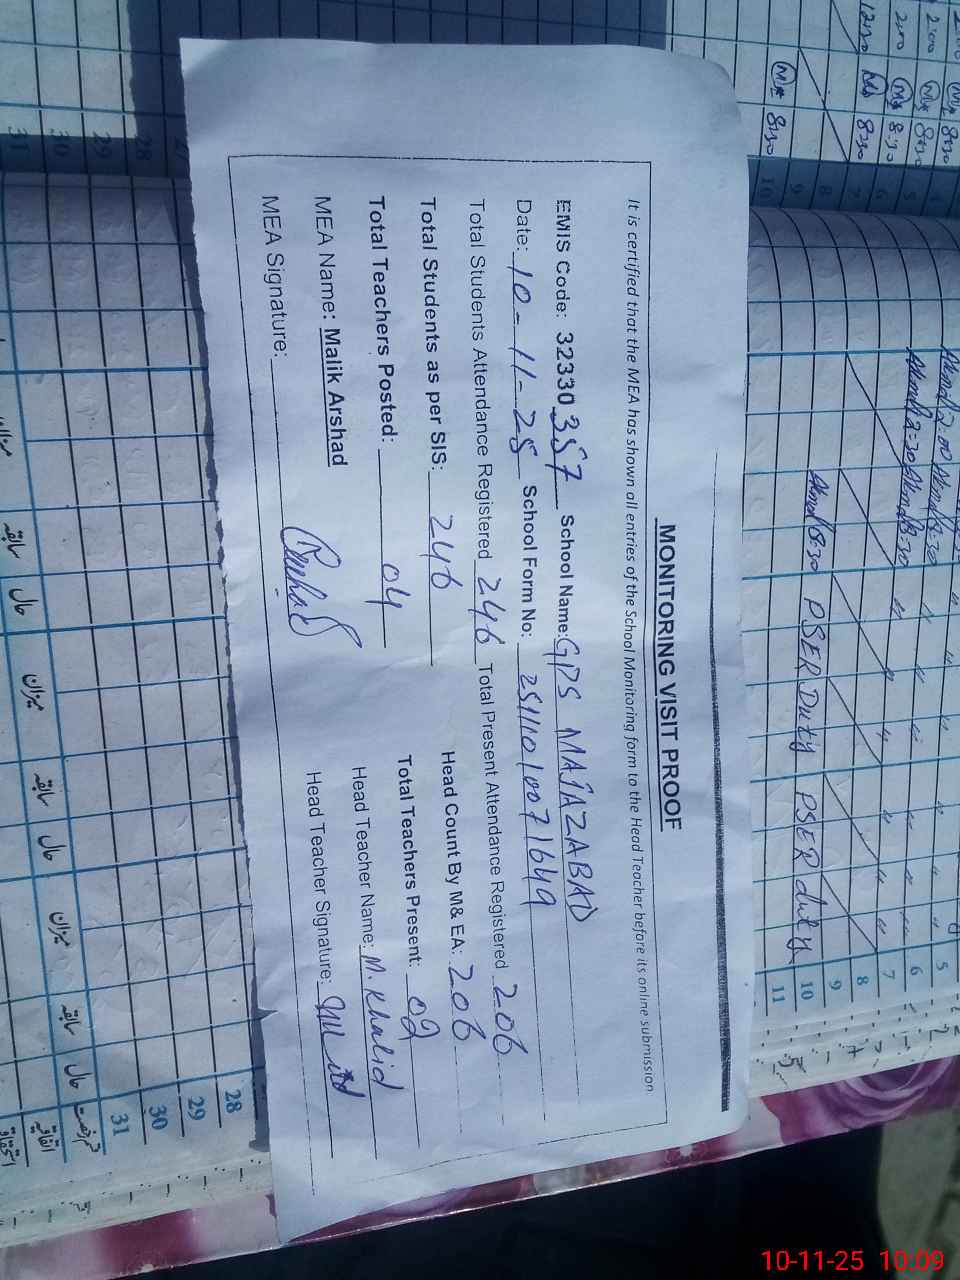 MONITORING VISIT PROOF
It is certified that the MEA has shown all entries of the School Monitoring form to the Head Teacher before its online submission
EMIS Code: 32330 357 School Name: GPS MAJAZABAD
Date: 10-11-25 School Form No: 25111010071649
Total Students Attendance Registered 246 Total Present Attendance Registered 206
Total Students as per SIS: 246 Head Count By M& EA: 206
Total Teachers Posted: 04 Total Teachers Present: 02
MEA Name: Malik Arshad Head Teacher Name: M. Khalid
MEA Signature: Head Teacher Signature:
2:00 8:30
2:00 8:30
2:00 8:30
12:30 8:30
8:30
5
6
7
8
9
10 PSER Duty PSER duty
11
28
29
30
31
میزان سابقہ حال میزان سابقہ حال میزان سابقہ حال
10-11-25 10:09